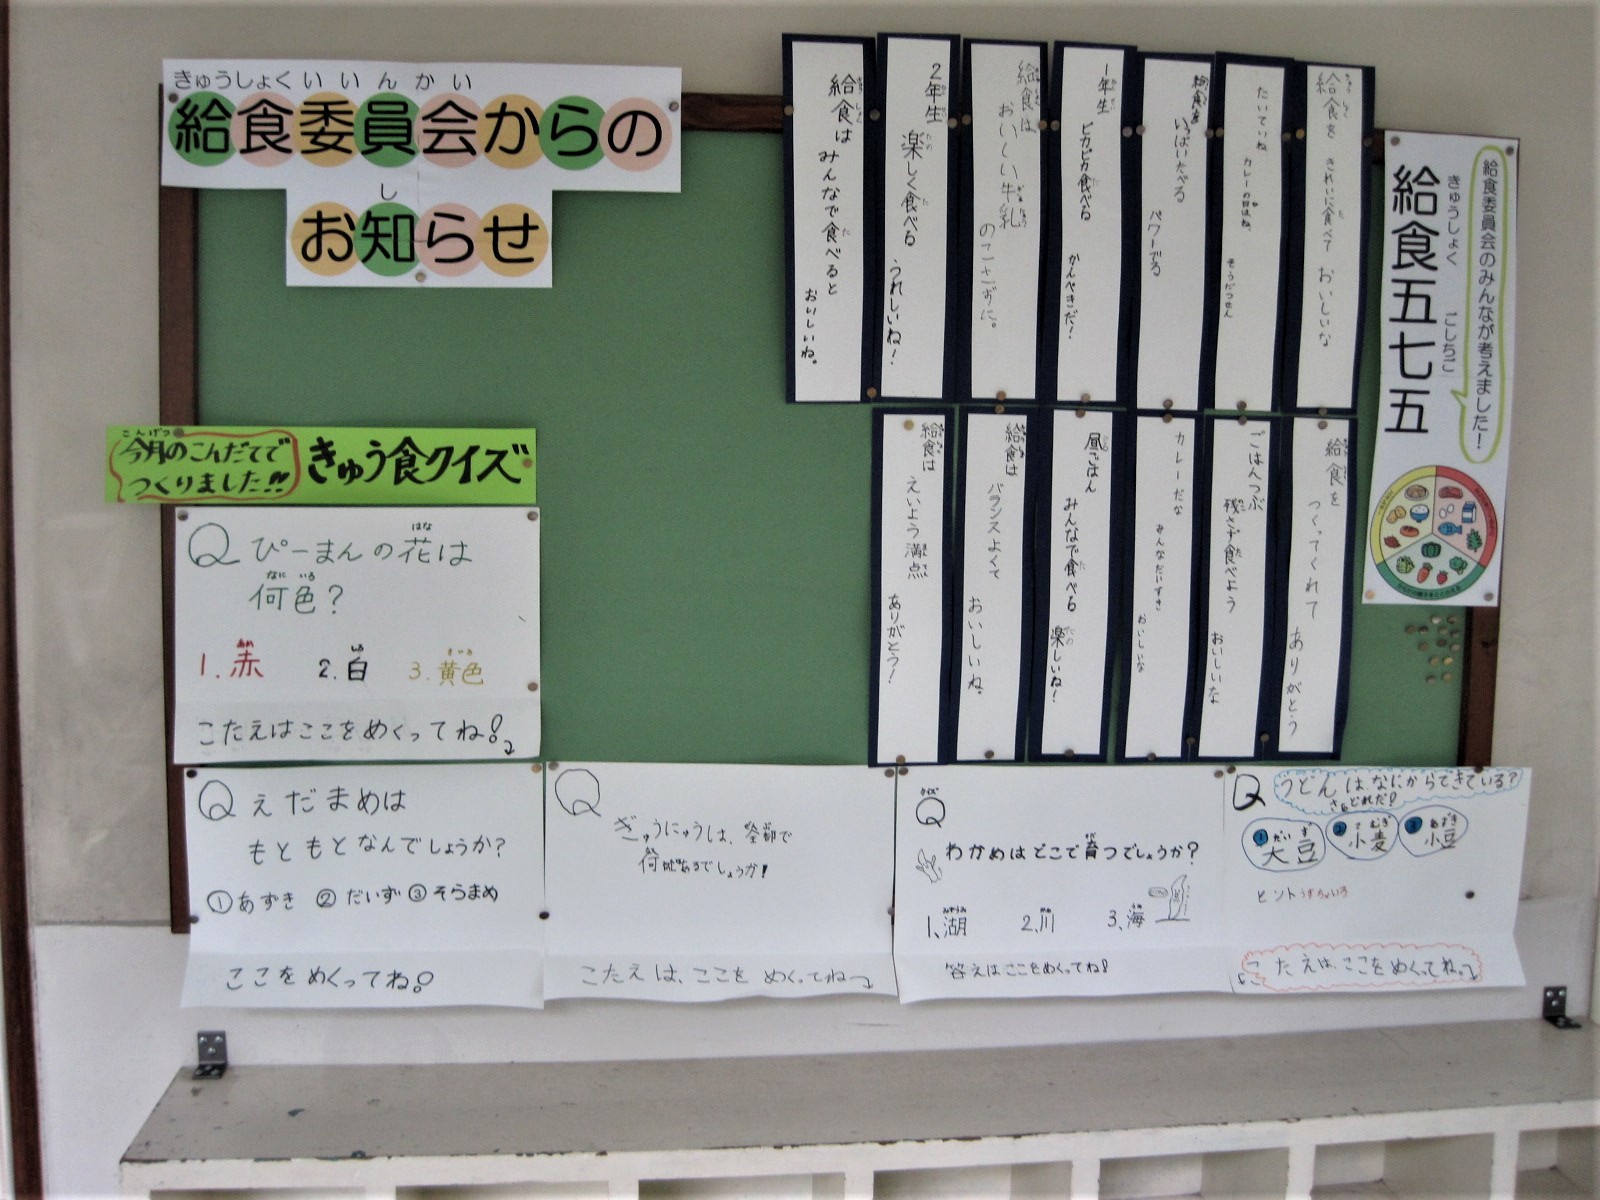 きゅうしょくいいんかい
給食委員会からの
し
お知らせ
給食委員会のみんなが考えました！
きゅうしょく ごしちご
給食五七五
給食を きれいに食べて おいしいな
カレーの日はね、
給食を いっぱいたべる パワーでる
1年生 ピカピカ食べる かんぺきだ！
給食は おいしい牛乳 のこさずに。
2年生 楽しく食べる うれしいね！
給食は みんなで食べると おいしいね。
給食を つくってくれて ありがとう
ごはんつぶ 残さず食べよう おいしいよ
カレーだな みんなだいすき おいしいな
昼ごはん みんなで食べる 楽しいね！
給食は バランスよくて おいしいね。
給食は えいよう満点 ありがとう！
こんげつ
今月のこんだてで
つくりました!!
きゅう食クイズ
Q ぴーまんの花は
何色？
1.赤 2.白 3.黄色
こたえはここをめくってね！
Q えだまめは
もともとなんでしょうか？
①あずき ②だいず ③そらまめ
ここをめくってね！
Q
ぎゅうにゅうは、全部で
こたえは、ここを めくってね
クイズ
Q
わかめはどこで育つでしょうか？
1、湖 2、川 3、海
答えはここをめくってね！
Q うどんは、なにからできている？
さぁどれだ？
①大豆 ②小麦 ③小豆
ヒント
こたえは、ここをめくってね。